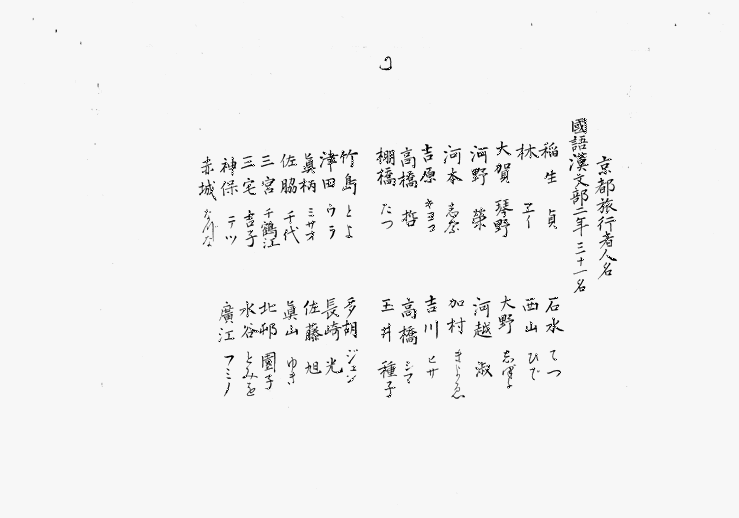 京都旅行者人名
國語漢文部二年 三十一名
稲生 貞
石水 てつ
林 ヱイ
西山 ひで
大賀 琴野
大野
河野 榮
河越 淑
河本
加村
吉原 キヨコ
吉川 ヒサ
高橋 哲
高橋 シマ
棚橋 たつ
玉井 種子
竹島 とよ
多胡 ジュン
津田 ウラ
長崎 光
眞柄 ミサオ
佐藤 旭
佐脇 千代
眞山 ゆき
三宮 千鶴江
北邨 園子
三宅 吉子
水谷 とみを
神保 テツ
廣江 フミノ
赤城